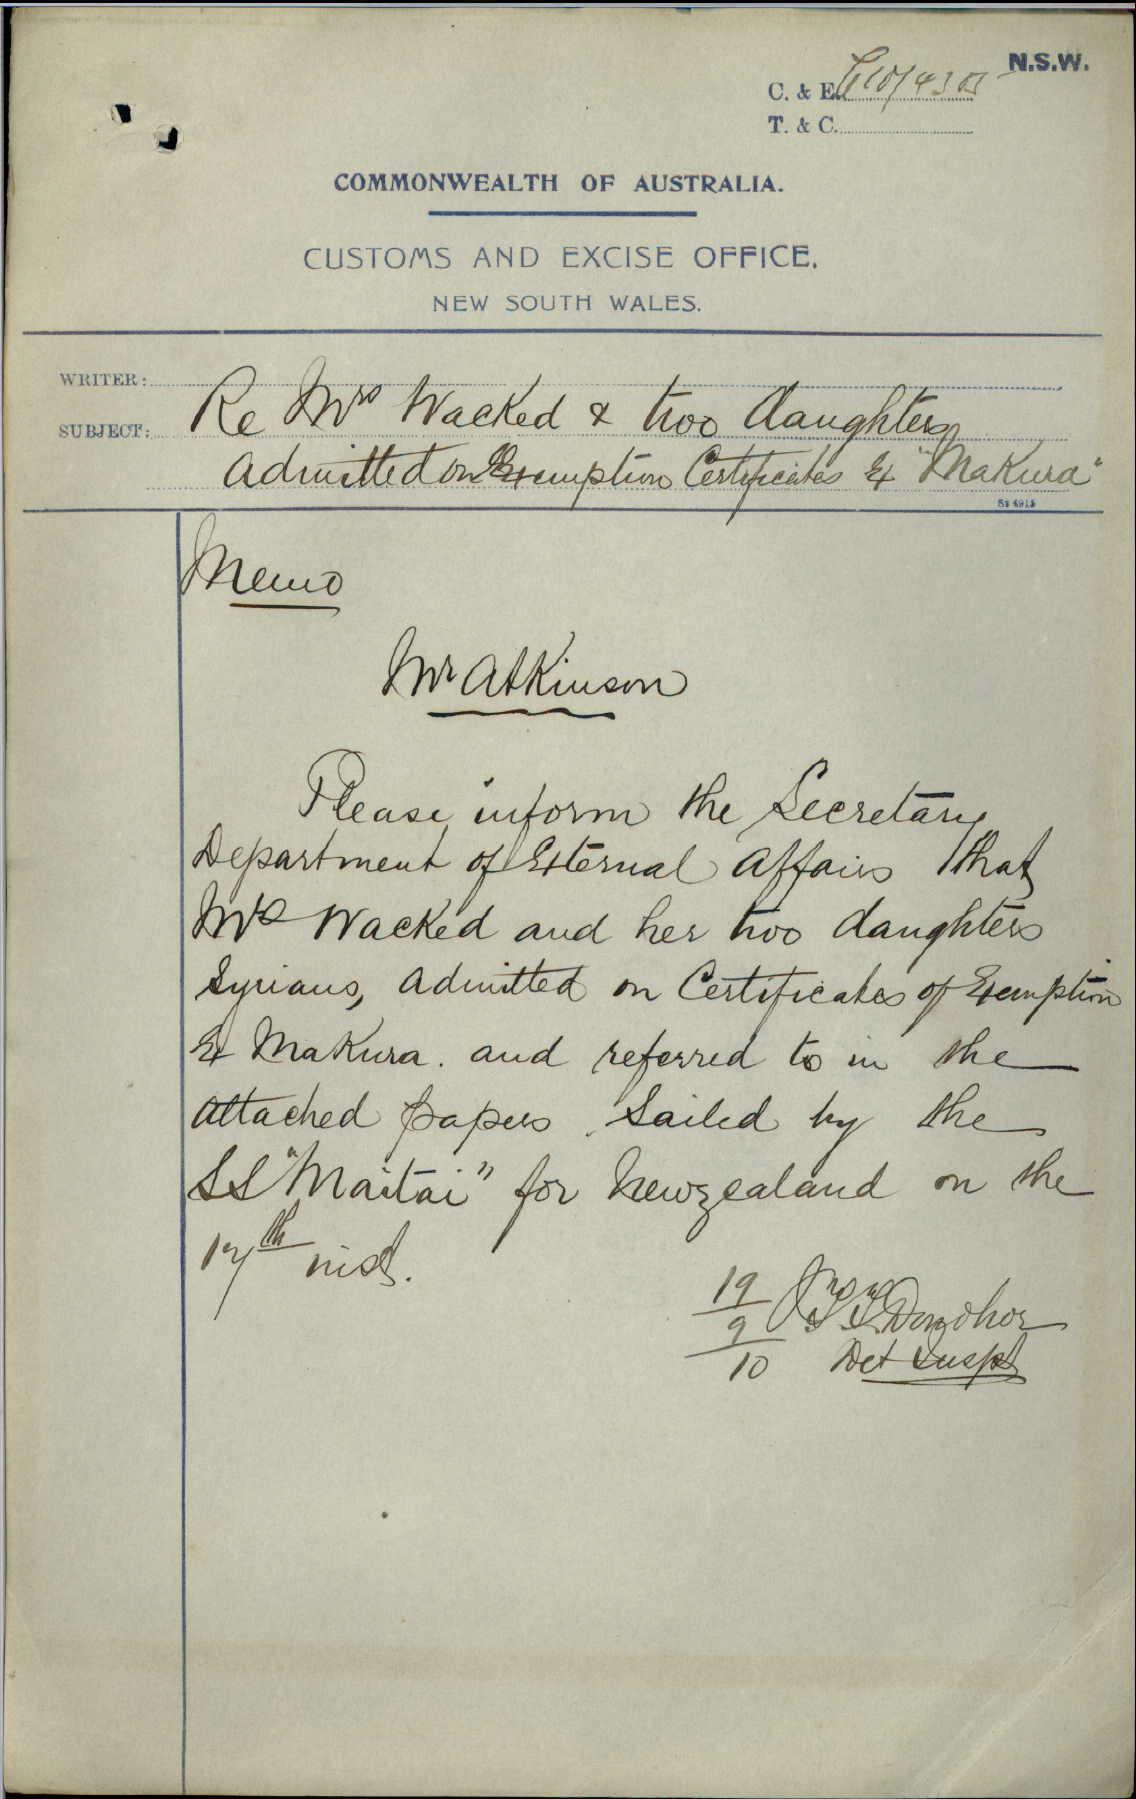 N.S.W.
C. & E.
T. & C.
COMMONWEALTH OF AUSTRALIA.
CUSTOMS AND EXCISE OFFICE.
NEW SOUTH WALES.
WRITER:
SUBJECT: Re Mrs Wacked & two daughters
Admitted on Exemption Certificates Ex "Makura"
Memo
Mr Atkinson
Please inform the Secretary
Department of External Affairs that
Mrs Wacked and her two daughters
Syrians, admitted on Certificates of Exemption
Ex Makura. and referred to in the
attached papers. Sailed by the
SS "Maitai" for Newzealand on the
17th inst.
19/9/10 Donohoe
Det Inspt